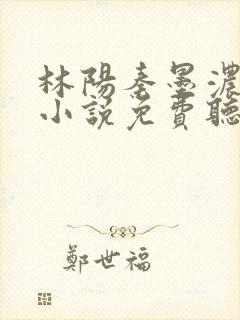 林陽秦墨濃
小說免費聽
鄭世福